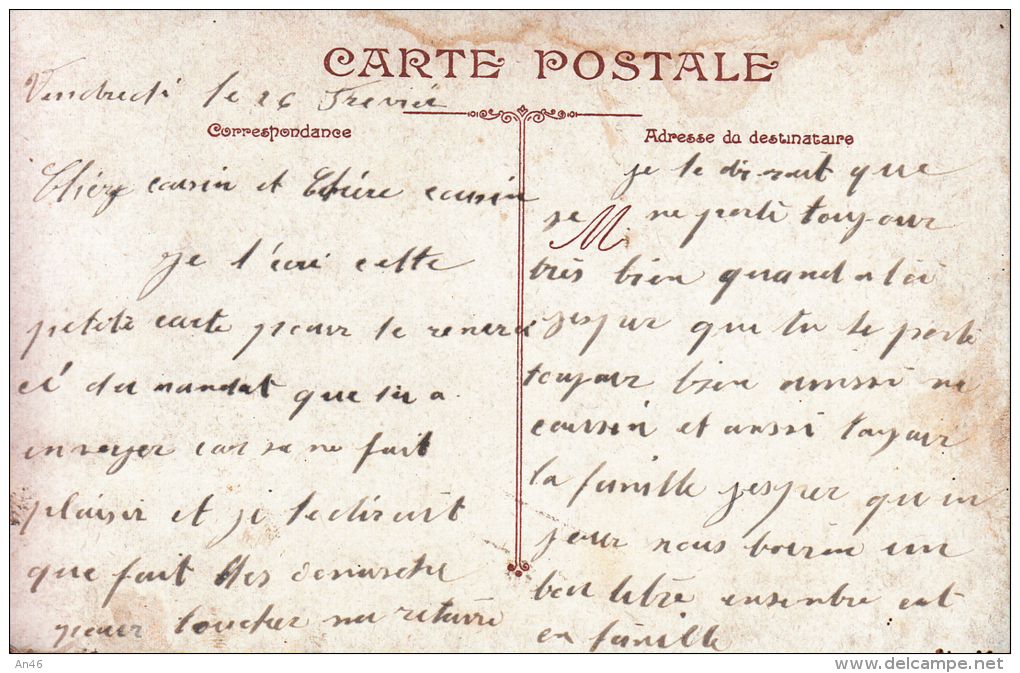 CARTE POSTALE
Vendredi le 26 Frevié
Correspondance
Chér cousin et Chére cousin
je t'écri cette
petite carte pour te remerci
é du mandat que tu a
envoyer car sa me fait
plaisir et je te dirait
que fait des démarche
pour toucher ma retaire
Adresse du destinataire
je te di-rait que
je M ne porte toujour
très bien quand a toi
jespur que tu te porte
toujour bien aussi ma
coussin et aussi toujour
la famille jesper qu un
jour nous boiron un
bon litre ensenbre est
en famille
An46
delcampe.net